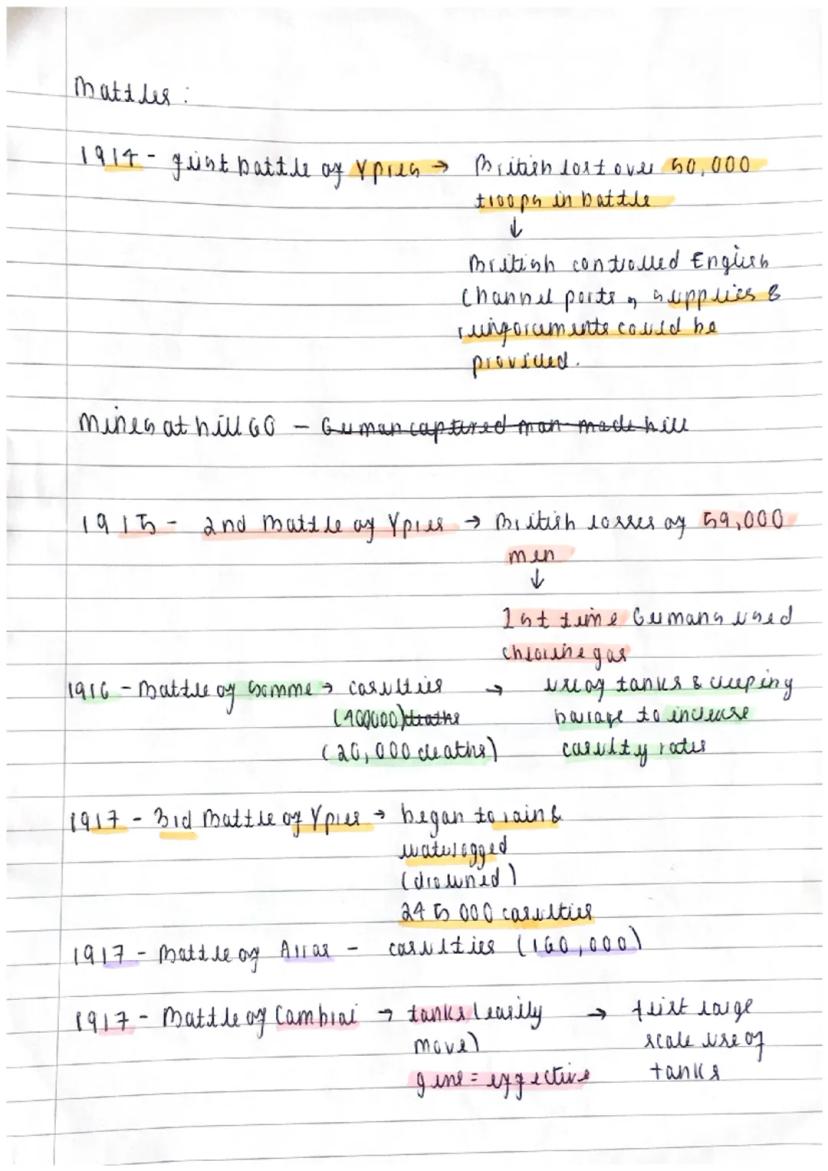 Battles :
1914 - first battle of Ypres → British lost over 50,000
troops in battle
↓
British controlled English
Channel ports, supplies &
reinforcements could be
provided.
Mines at hill 60 - German captured man-made hill
1915 - 2nd Battle of Ypres → British losses of 59,000
men
↓
1st time Germans used
chlorine gas
1916 - Battle of Somme → casulties → use of tanks & creeping
(400000) deaths barage to increase
(20,000 deaths) casulty rates
1917 - 3rd Battle of Ypres → began to rain &
waterlogged
(drowned)
245 000 casulties
1917 - Battle of Arras - casulties (160,000)
1917 - Battle of Cambrai → tanks (easily → first large
move) scale use of
= effective tanks